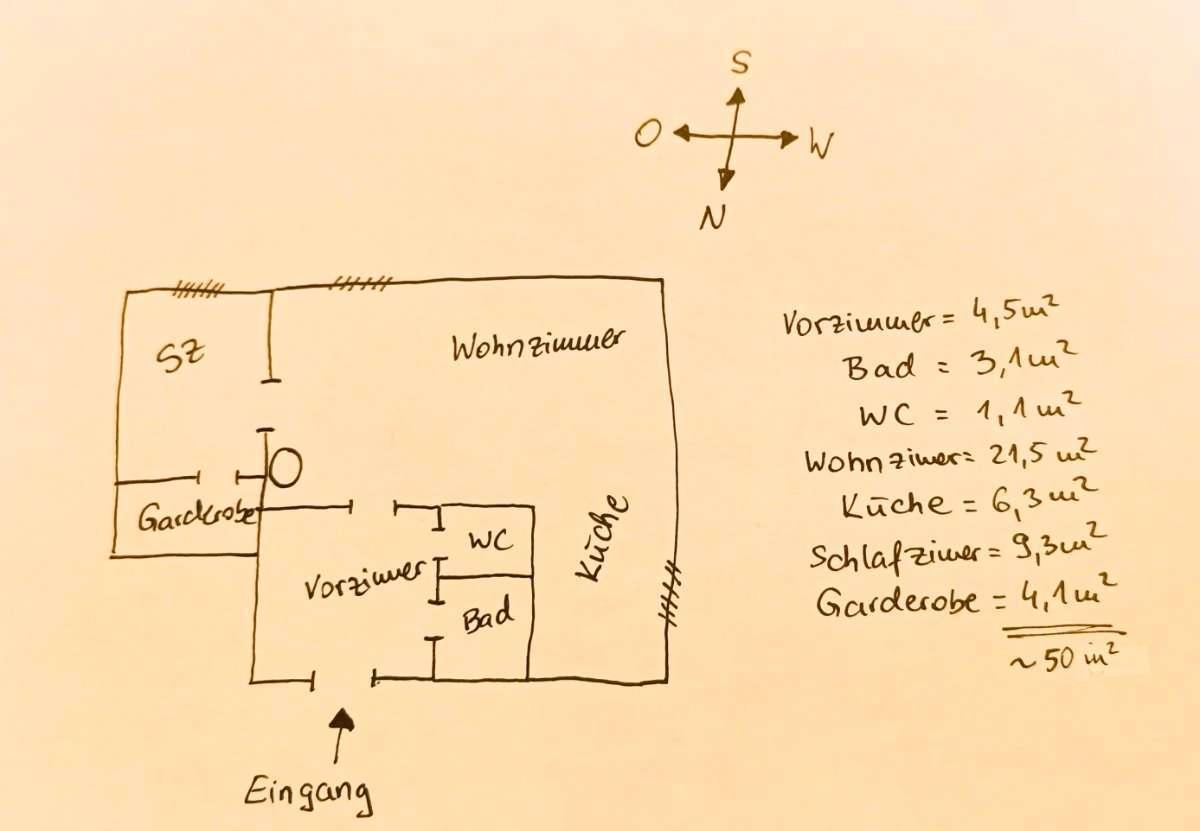 S
O W
N
SZ
Wohnzimmer
Garderobe
WC
Vorzimmer
Bad
Küche
Eingang
Vorzimmer = 4,5m²
Bad = 3,1m²
WC = 1,1m²
Wohnzimer = 21,5 m²
Küche = 6,3m²
Schlafzimer = 9,3m²
Garderobe = 4,1m²
~ 50 m²